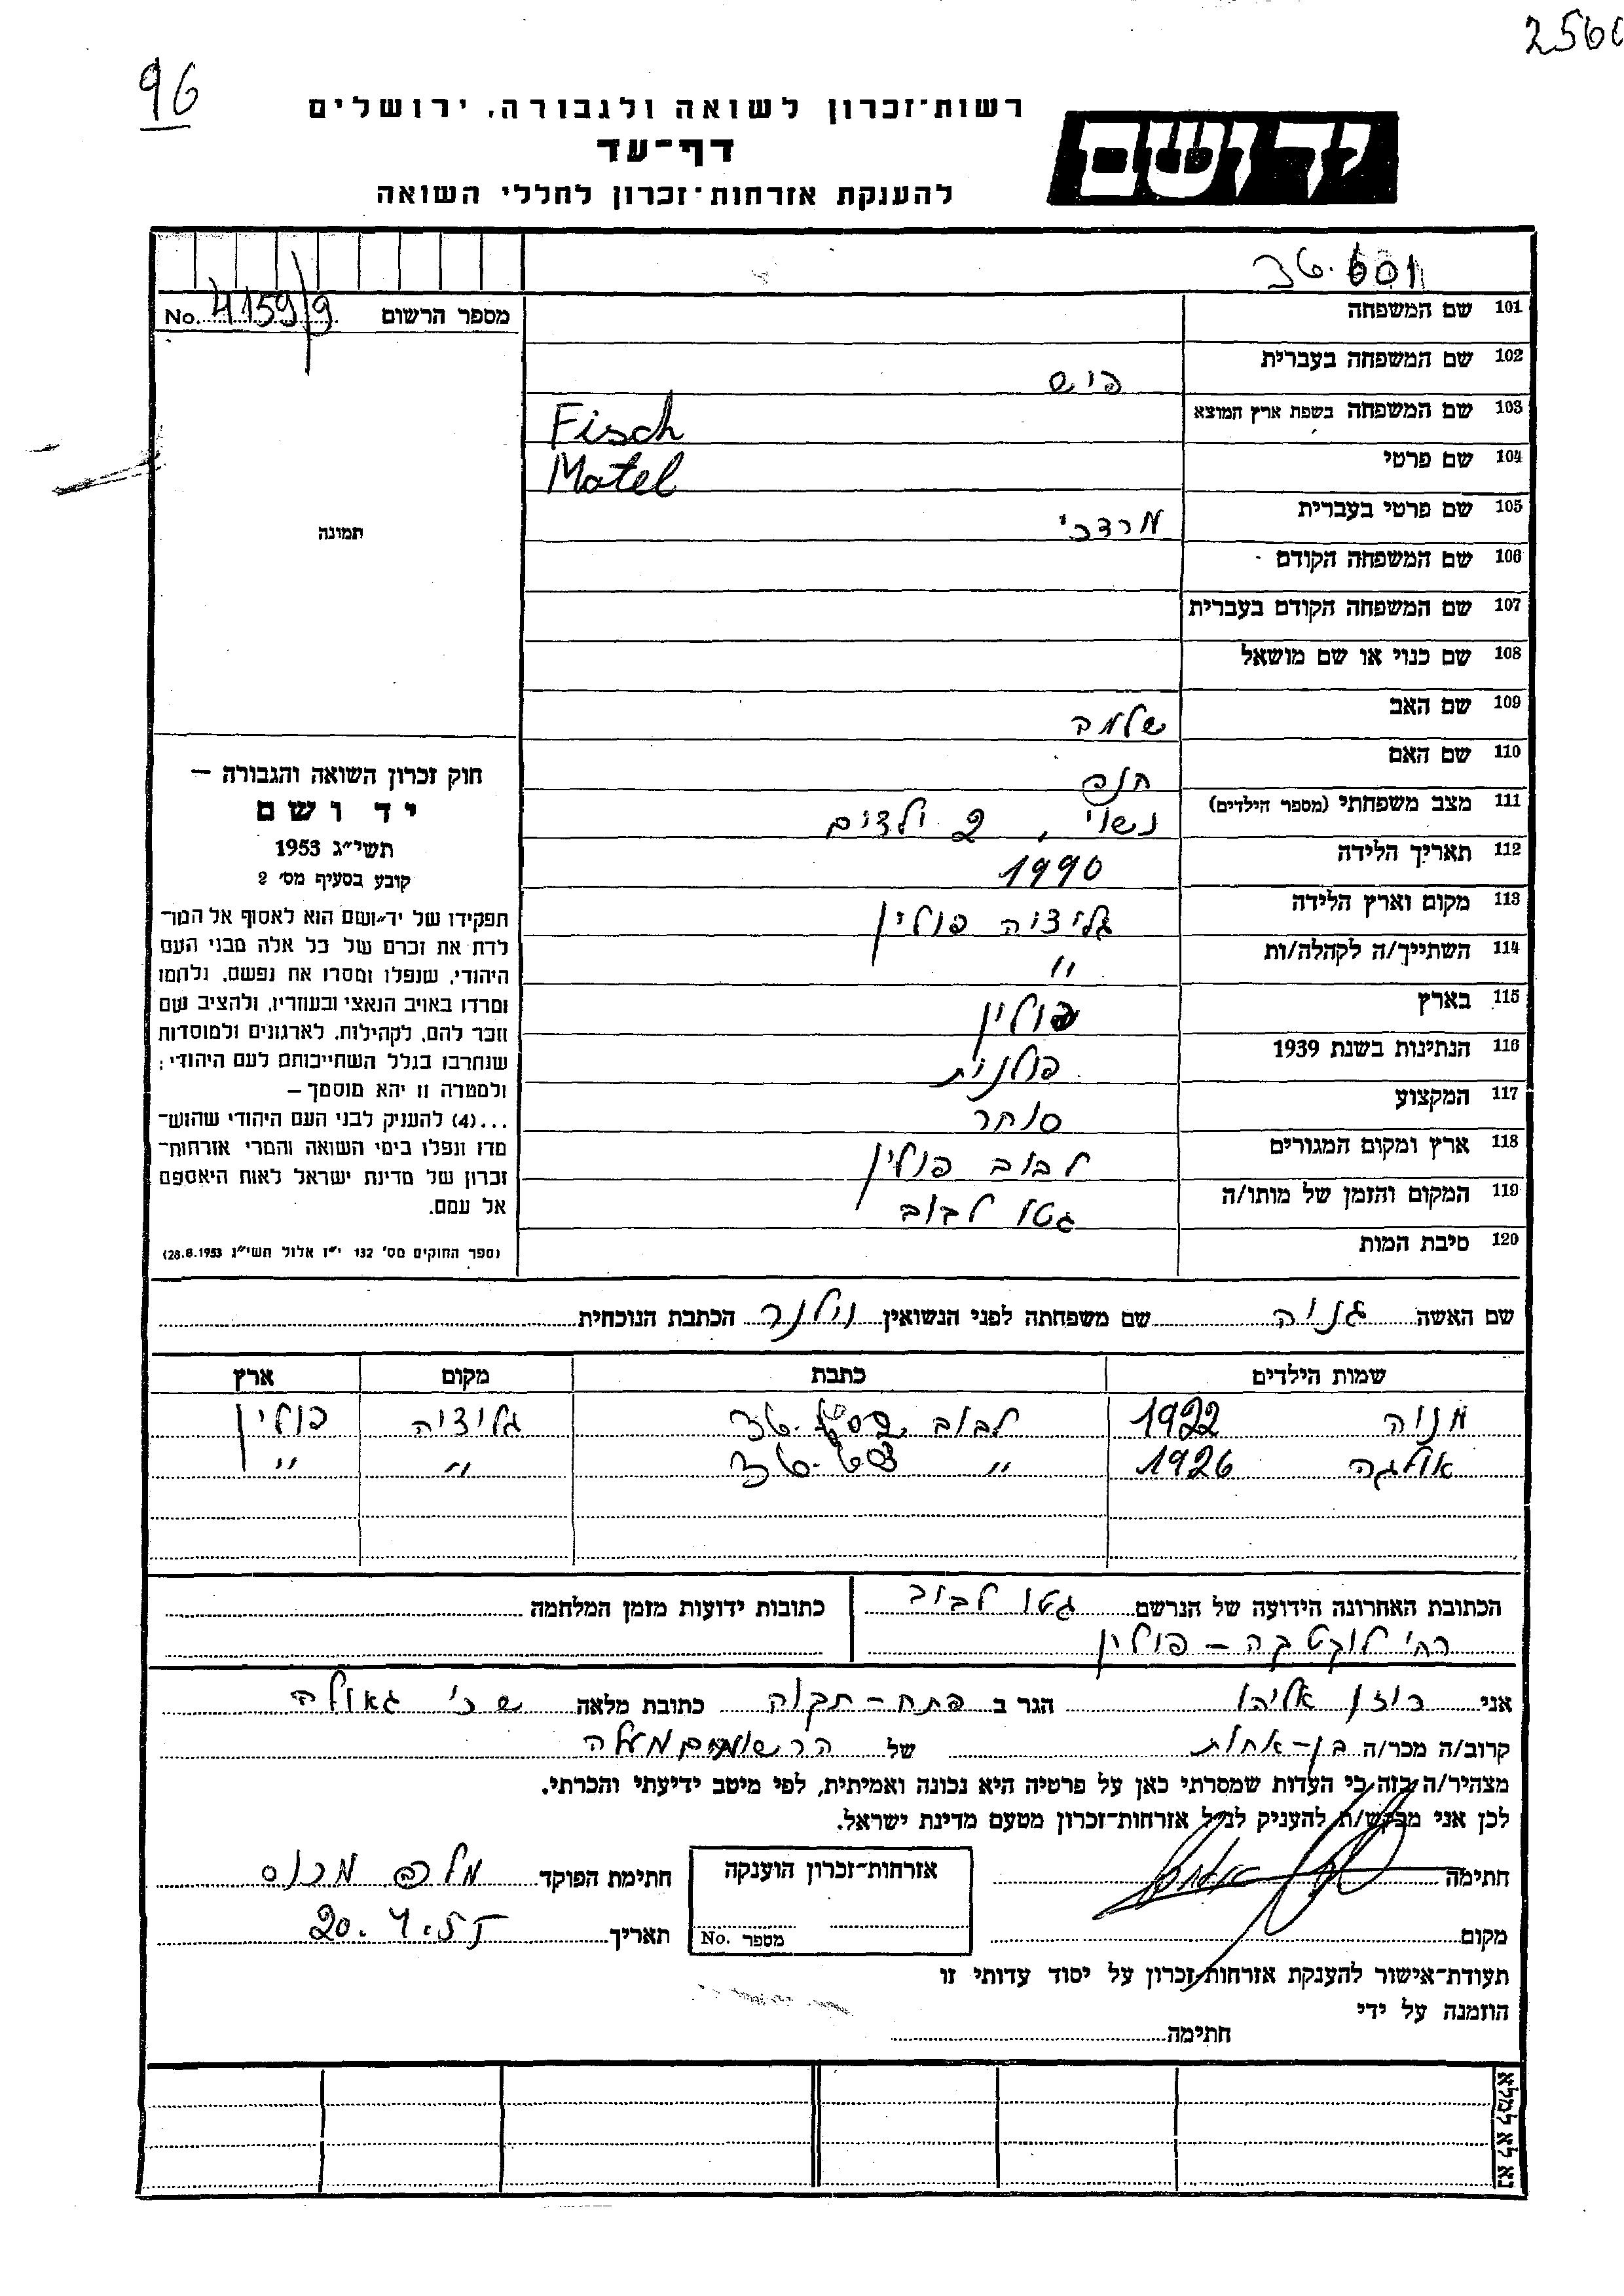 96
רשות־זכרון לשואה ולגבורה, ירושלים
דף־עד
להענקת אזרחות־זכרון לחללי השואה
יד ושם
36.601
No. 4159/9 מספר הרשום
תמונה
101 שם המשפחה
102 שם המשפחה בעברית פיש
103 שם המשפחה בשפת ארץ המוצא Fisch
104 שם פרטי Motel
105 שם פרטי בעברית מרדכי
106 שם המשפחה הקודם
107 שם המשפחה הקודם בעברית
108 שם כנוי או שם מושאל
109 שם האב שלמה
110 שם האם
111 מצב משפחתי (מספר הילדים) נשוי, 2 ילדים
112 תאריך הלידה 1990
113 מקום וארץ הלידה גליציה פולין
114 השתייך/ה לקהלה/ות "
115 בארץ פולין
116 הנתינות בשנת 1939 פולנית
117 המקצוע סוחר
118 ארץ ומקום המגורים לבוב פולין
119 המקום והזמן של מותו/ה גטו לבוב
120 סיבת המות
חוק זכרון השואה והגבורה —
יד ושם
תשי״ג 1953
קובע בסעיף מס׳ 2
תפקידו של יד־ושם הוא לאסוף אל המו־
לדת את זכרם של כל אלה מבני העם
היהודי, שנפלו ומסרו את נפשם, נלחמו
ומרדו באויב הנאצי ובעוזריו, ולהציב שם
וזכר להם, לקהילות, לארגונים ולמוסדות
שנחרבו בגלל השתייכותם לעם היהודי;
ולמטרה זו יהא מוסמך —
...(4) להעניק לבני העם היהודי שהוש־
מדו ונפלו בימי השואה והמרי אזרחות־
זכרון של מדינת ישראל לאות היאספם
אל עמם.
(ספר החוקים מס׳ 132 י״ז אלול תשי״ג 28.8.1953)
שם האשה גניה שם משפחתה לפני הנשואין וילנר הכתבת הנוכחית
שמות הילדים כתבת מקום ארץ
מניה 1922 לבוב 36.602 גליציה פולין
אולגה 1926 " 36.603 " "
הכתובת האחרונה הידועה של הנרשם גטו לבוב
רח׳ לוקטקה - פולין
כתובות ידועות מזמן המלחמה
אני רוזן אליהו הגר ב פתח-תקוה כתובת מלאה שכ׳ גאולה
קרוב/ה מכר/ה בן-אחות של הרשומים מעלה
מצהיר/ה בזה כי העדות שמסרתי כאן על פרטיה היא נכונה ואמיתית, לפי מיטב ידיעתי והכרתי.
לכן אני מבקש/ת להעניק לנ״ל אזרחות־זכרון מטעם מדינת ישראל.
חתימה
אזרחות־זכרון הוענקה
חתימת הפוקד
מקום
מספר No.
תאריך 20.7.55
תעודת־אישור להענקת אזרחות־זכרון על יסוד עדותי זו
הוזמנה על ידי
חתימה
נא לא למלא